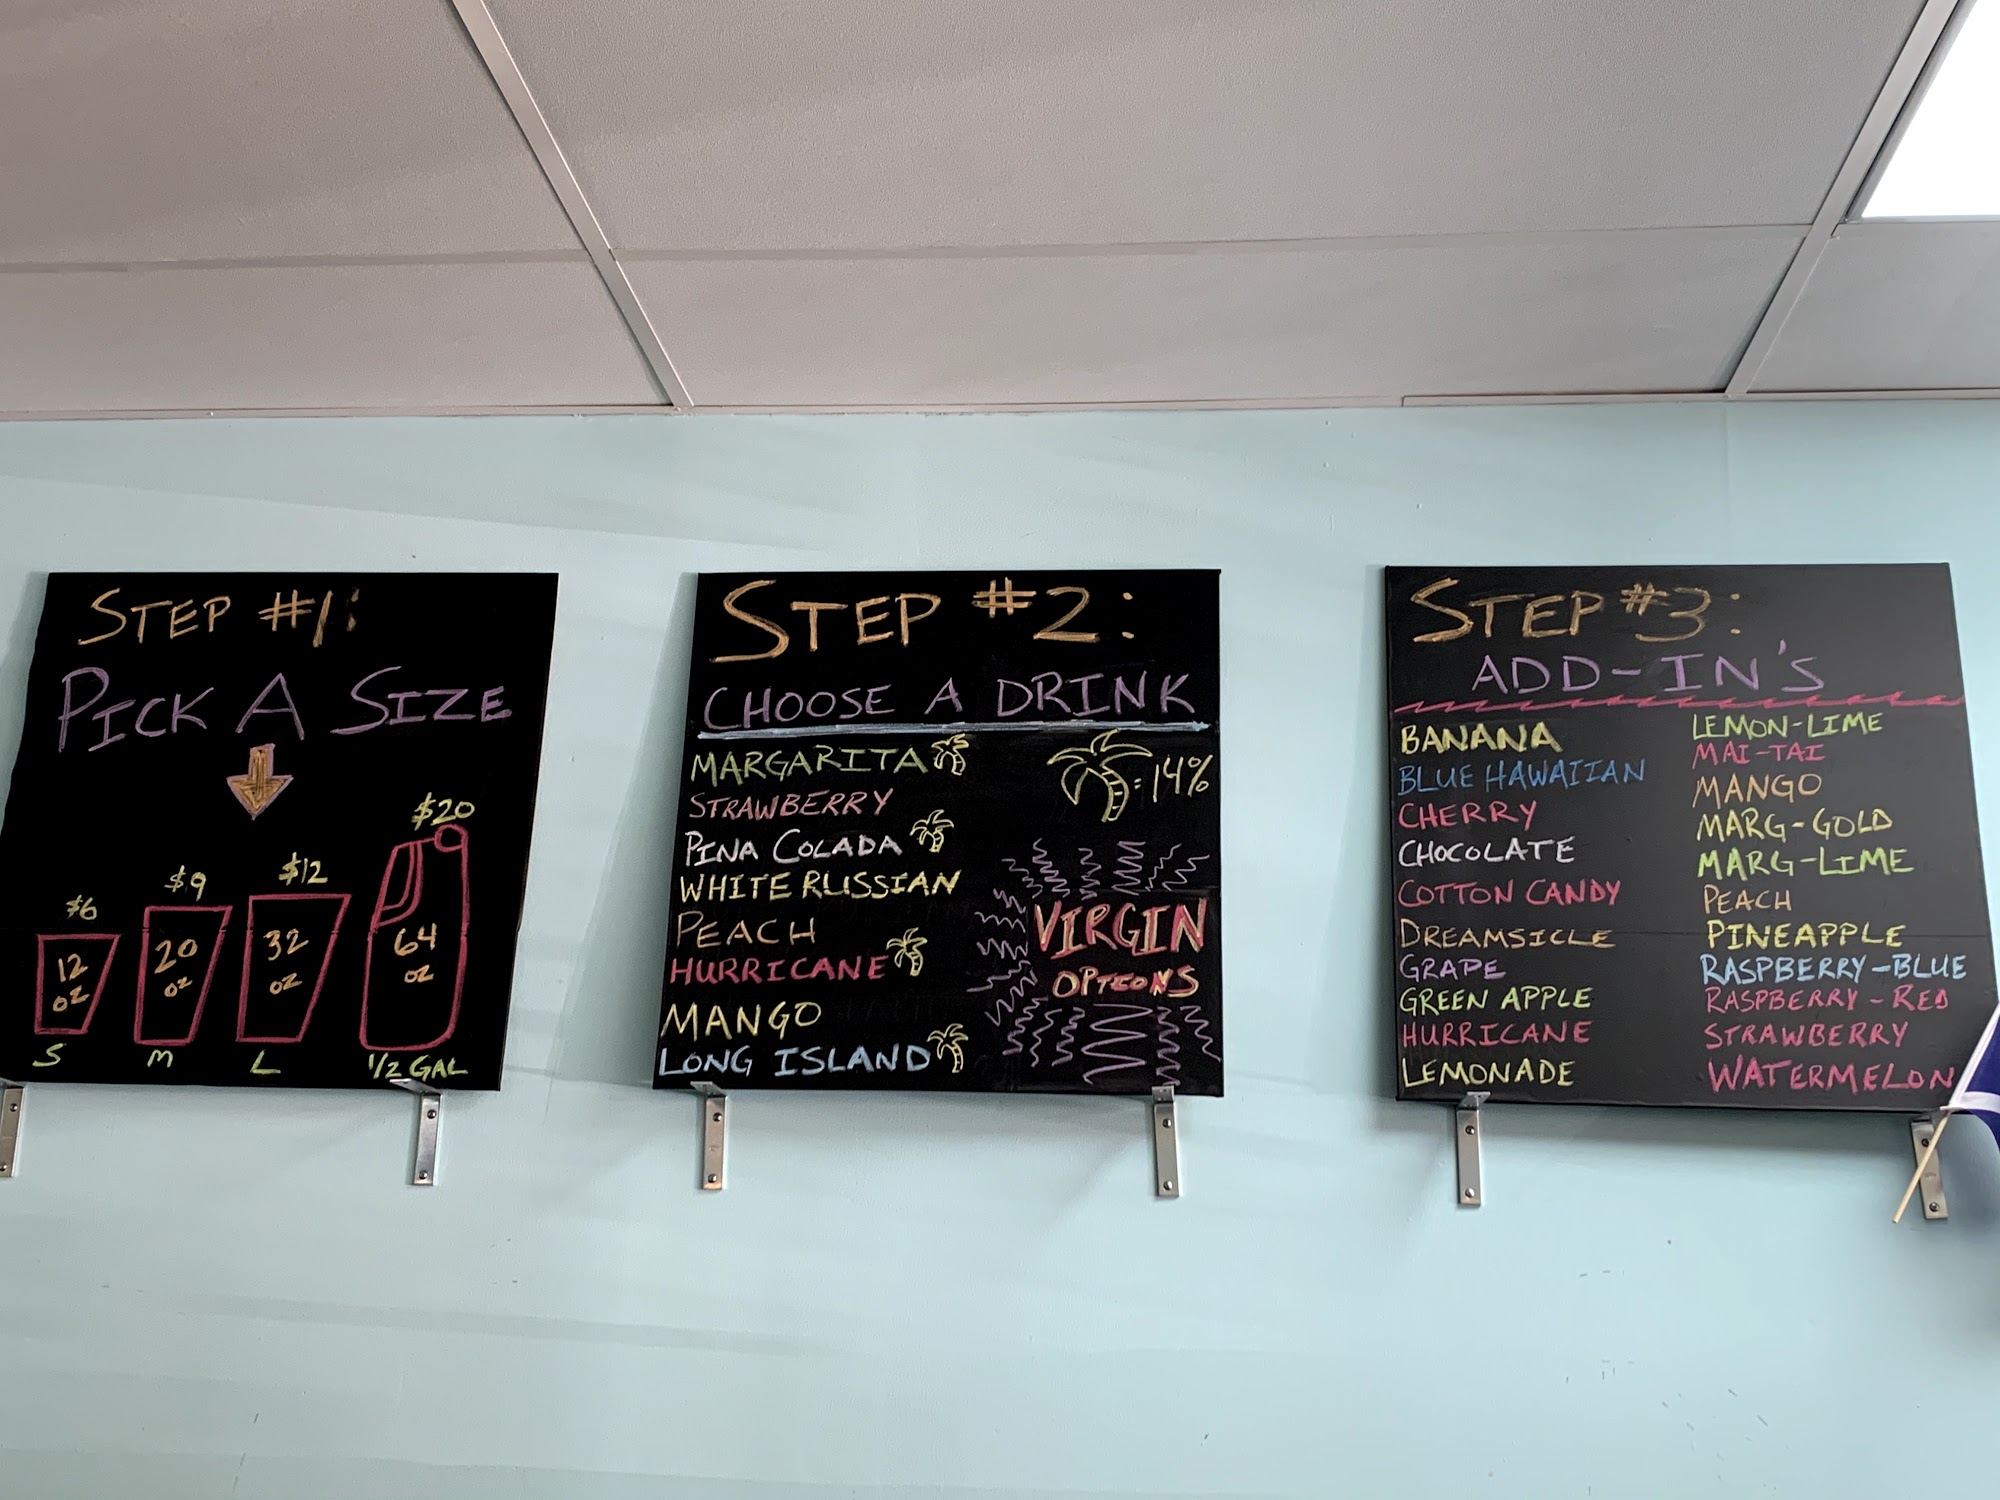 STEP #1:
PICK A SIZE
$6
$9
$12
$20
12
OZ
20
OZ
32
OZ
64
OZ
S
M
L
1/2 GAL
STEP #2:
CHOOSE A DRINK
MARGARITA
STRAWBERRY
PINA COLADA
WHITE RUSSIAN
PEACH
HURRICANE
MANGO
LONG ISLAND
= 14%
VIRGIN
OPTIONS
STEP #3:
ADD-IN'S
BANANA
BLUE HAWAIIAN
CHERRY
CHOCOLATE
COTTON CANDY
DREAMSICLE
GRAPE
GREEN APPLE
HURRICANE
LEMONADE
LEMON-LIME
MAI-TAI
MANGO
MARG-GOLD
MARG-LIME
PEACH
PINEAPPLE
RASPBERRY-BLUE
RASPBERRY-RED
STRAWBERRY
WATERMELON